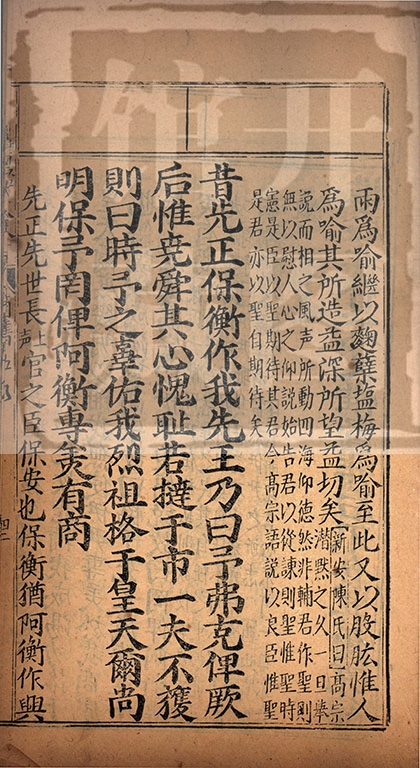 雨爲喻繼以麴糵塩梅爲喻至此又以股肱惟人
爲喻其所造益深所望益切矣新安陳氏曰高宗
潜黙之久一旦舉
說而相之風声所動四海仰德然非輔君作聖則
無以慰人心之仰說始告君以從諫則聖惟聖時
憲是臣以聖期待其君今高宗語說以良臣惟聖
是君亦以聖自期待矣
昔先正保衡作我先王乃曰予弗克俾厥
后惟堯舜其心愧耻若撻于市一夫不獲
則曰時予之辜佑我烈祖格于皇天爾尚
明保予罔俾阿衡專羙有商
先正先世長上声官之臣保安也保衡猶阿衡作興